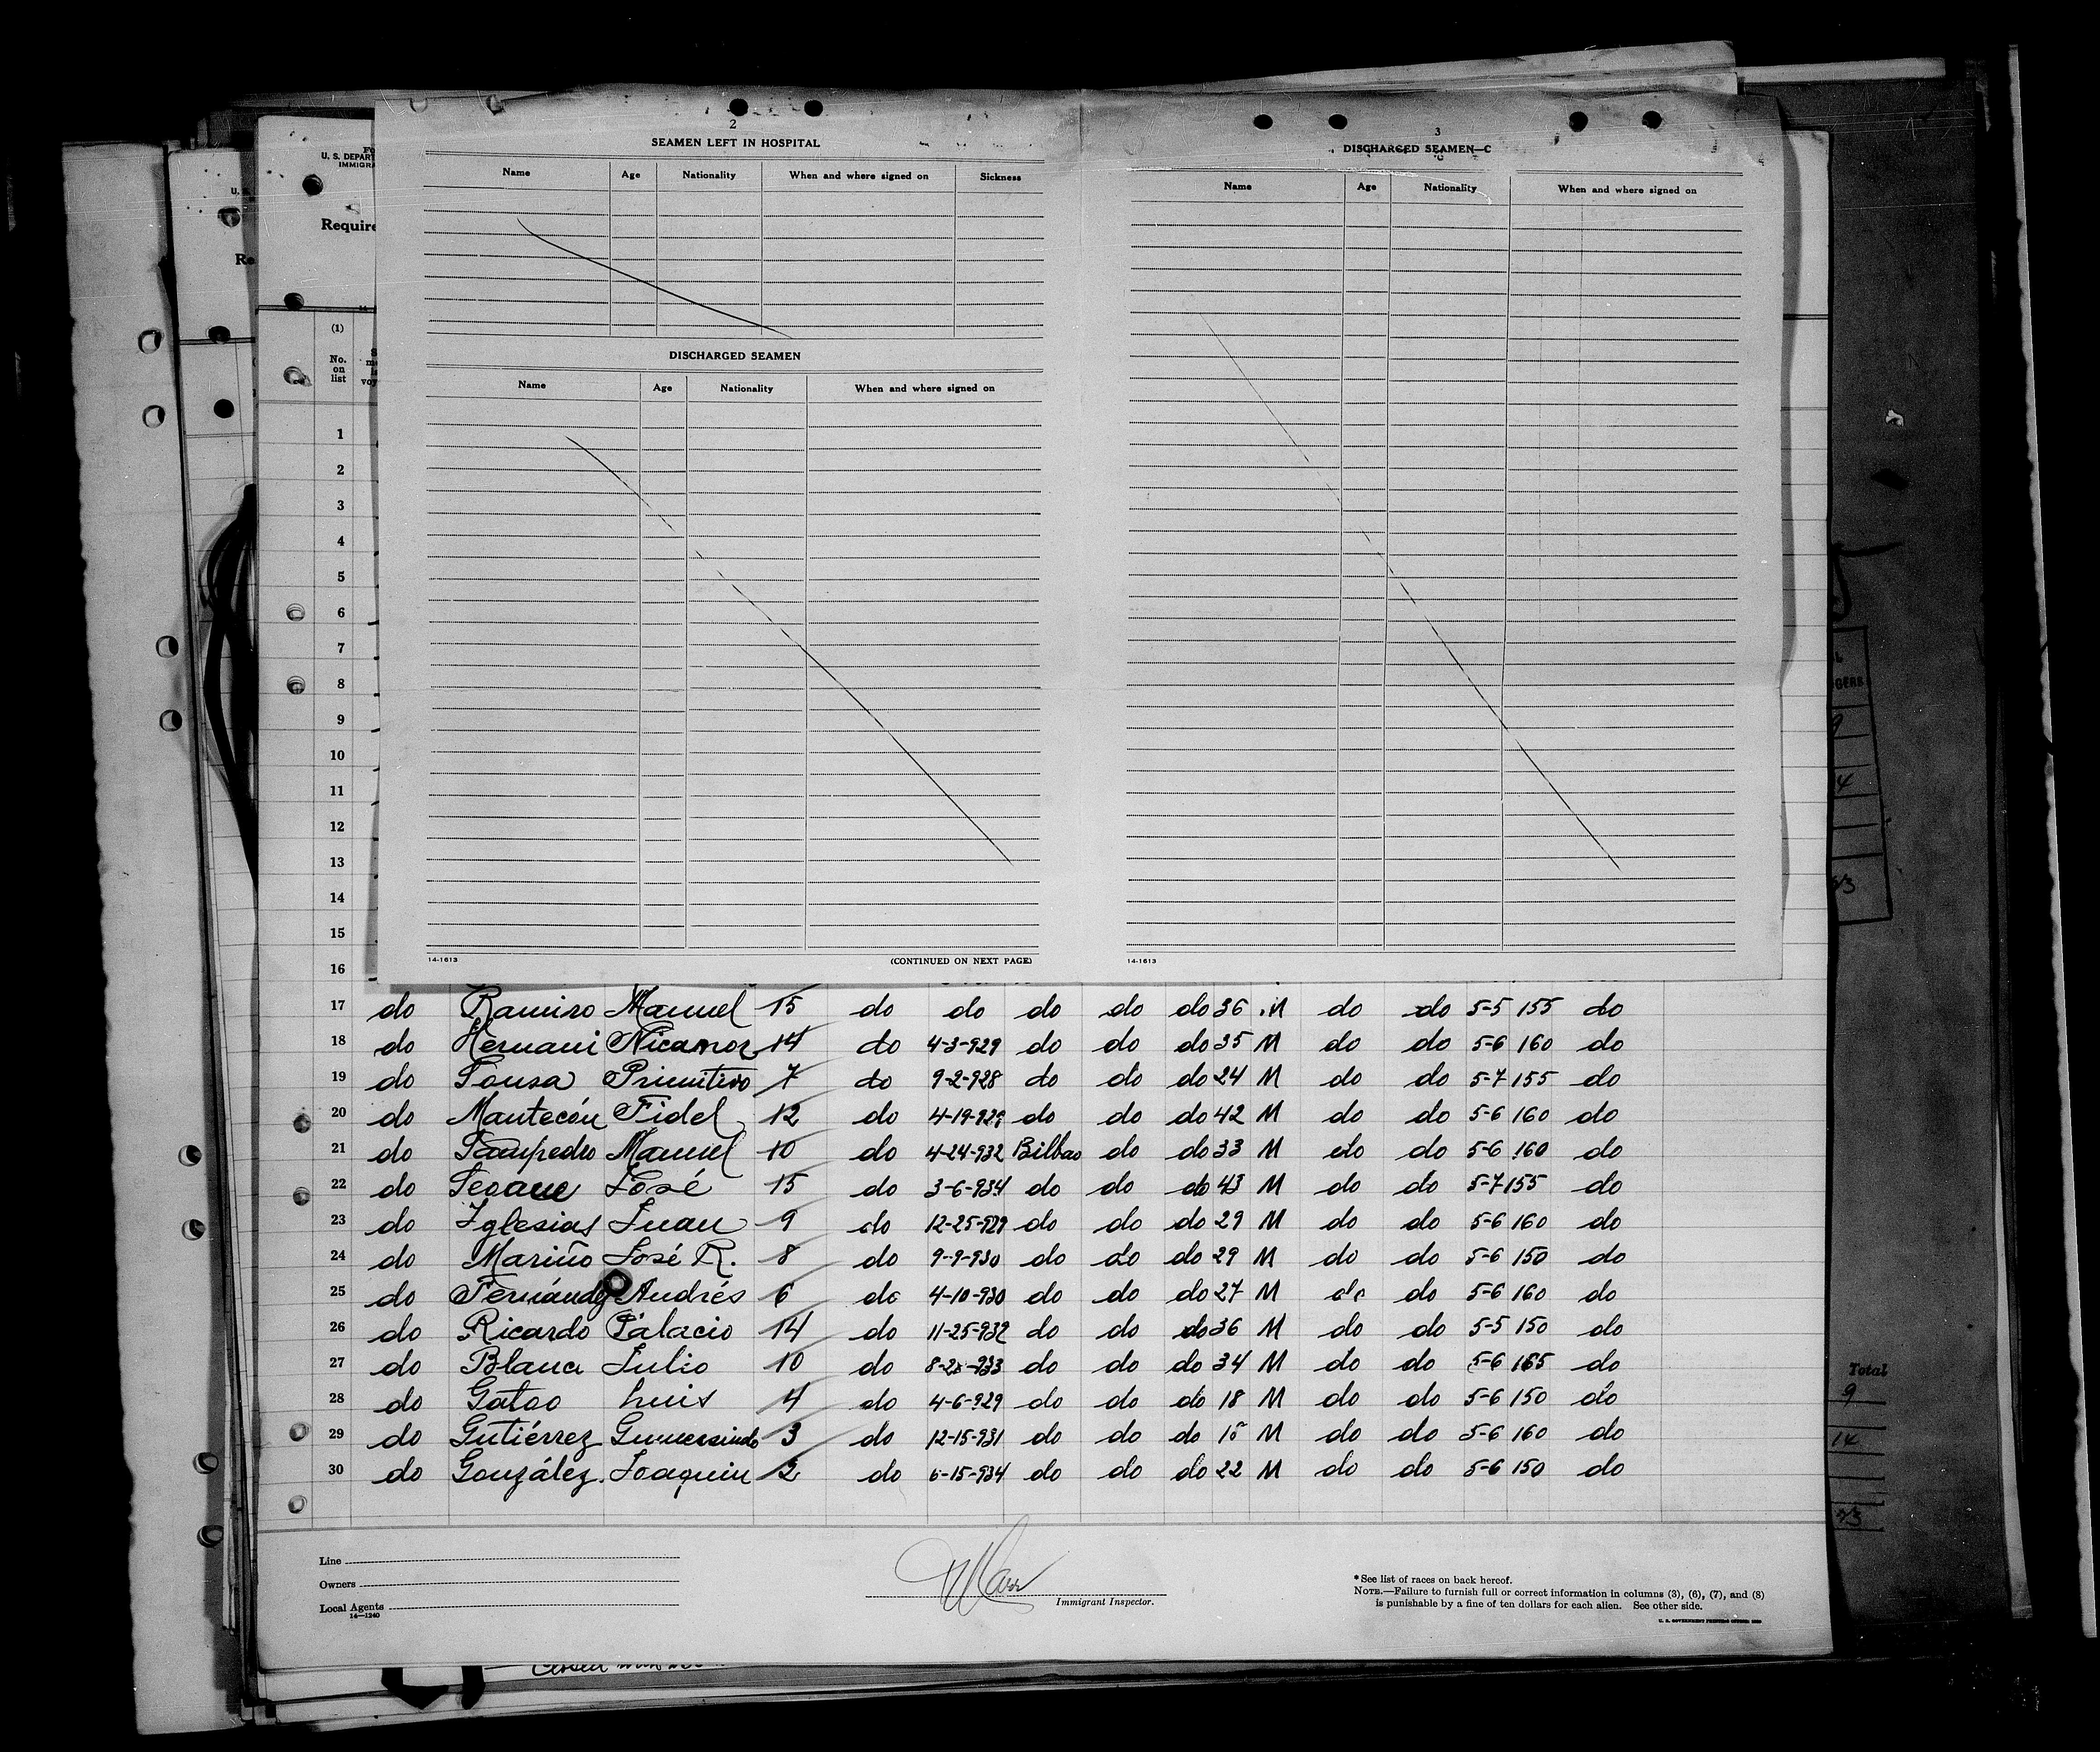 2
SEAMEN LEFT IN HOSPITAL
Name Age Nationality When and where signed on Sickness
DISCHARGED SEAMEN
Name Age Nationality When and where signed on
14-1613 (CONTINUED ON NEXT PAGE)
3
DISCHARGED SEAMEN—C
Name Age Nationality When and where signed on
14-1613
U. S. DEPART
IMMIGRA
Require
Re
(1)
No.
on
list
1
2
3
4
5
6
7
8
9
10
11
12
13
14
15
16
17 do Ramiro Manuel 15 do do do do do 36 M do do 5-5 155 do
18 do Hernani Nicanor 14 do 4-3-929 do do do 35 M do do 5-6 160 do
19 do Sousa Primitivo 7 do 9-2-928 do do do 24 M do do 5-7 155 do
20 do Mantecón Fidel 12 do 4-19-929 do do do 42 M do do 5-6 160 do
21 do Sampedro Manuel 10 do 4-24-932 Bilbao do do 33 M do do 5-6 160 do
22 do Seoane José 15 do 3-6-934 do do do 43 M do do 5-7 155 do
23 do Iglesias Juan 9 do 12-25-929 do do do 29 M do do 5-6 160 do
24 do Mariño José R. 8 do 9-9-930 do do do 29 M do do 5-6 150 do
25 do Fernández Andrés 6 do 4-10-930 do do do 27 M do do 5-6 160 do
26 do Ricardo Palacio 14 do 11-25-932 do do do 36 M do do 5-5 150 do
27 do Blanca Julio 10 do do do do 34 M do do 5-6 165 do
28 do Gatoo Luis 4 do 4-6-929 do do do 18 M do do 5-6 150 do
29 do Gutiérrez Gumersindo 3 do 12-15-931 do do do M do do 5-6 160 do
30 do González Joaquin 2 do 6-15-934 do do do 22 M do do 5-6 150 do
Line
Owners
Local Agents
14—1240
Immigrant Inspector.
* See list of races on back hereof.
NOTE.—Failure to furnish full or correct information in columns (3), (6), (7), and (8)
is punishable by a fine of ten dollars for each alien. See other side.
Total
9
14